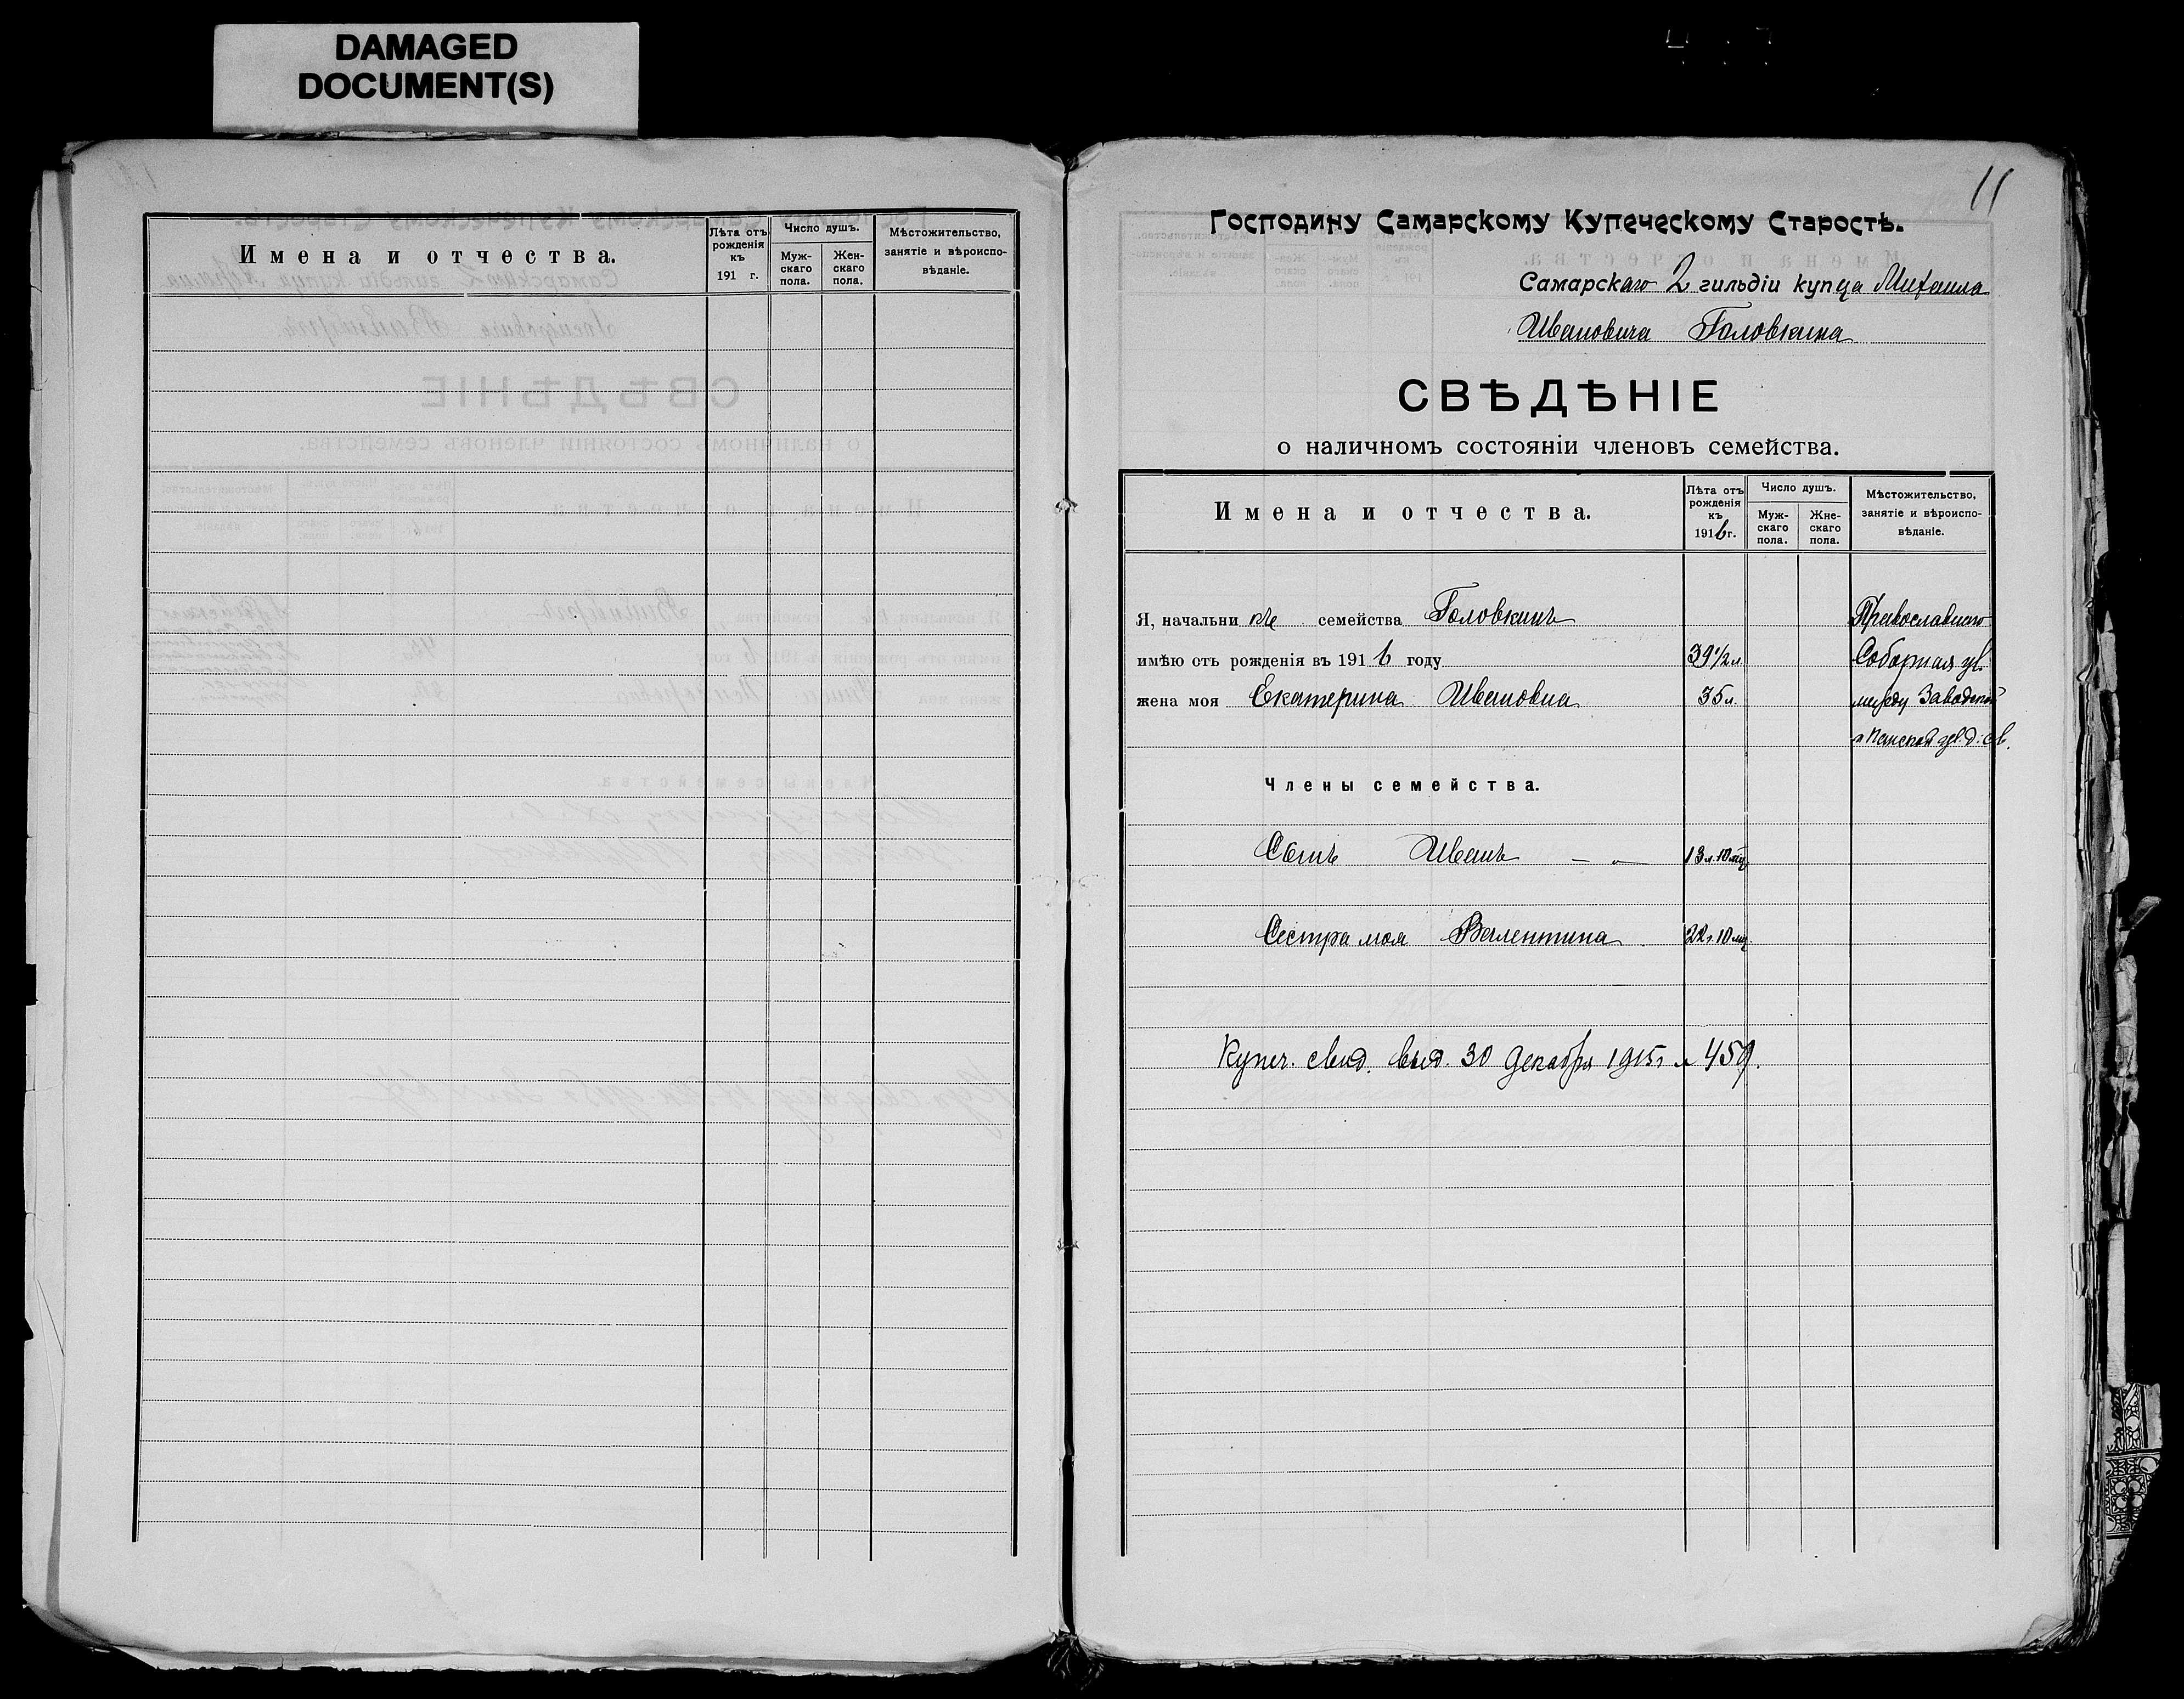 DAMAGED
DOCUMENT(S)
Имена и отчества.
Лѣта отъ рожденія къ 191 г.
Число душъ.
Муж-скаго пола.
Жен-скаго пола.
Мѣстожительство, занятіе и вѣроиспо-вѣданіе.
11
Господину Самарскому Купеческому Старостѣ.
Самарскаго 2 гильдіи купца Михаила
Ивановича Головкина
СВѢДѢНІЕ
о наличномъ состояніи членовъ семейства.
Имена и отчества.
Лѣта отъ рожденія къ 1916 г.
Число душъ.
Муж-скаго пола.
Жне-скаго пола.
Мѣстожительство, занятіе и вѣроиспо-вѣданіе.
Я, начальникъ семейства Головкинъ Православнаго
имѣю отъ рожденія въ 1916 году 39 1/2 л. Соборная ул.
жена моя Екатерина Ивановна 35 л. между Заводской
и Панской ул. д. св.
Члены семейства.
Сынъ Иванъ — " — 13 л. 10 мц.
Сестра моя Валентина 22 г. 10 мц.
Купеч. свид. выд. 30 Декабря 1915 г № 459.